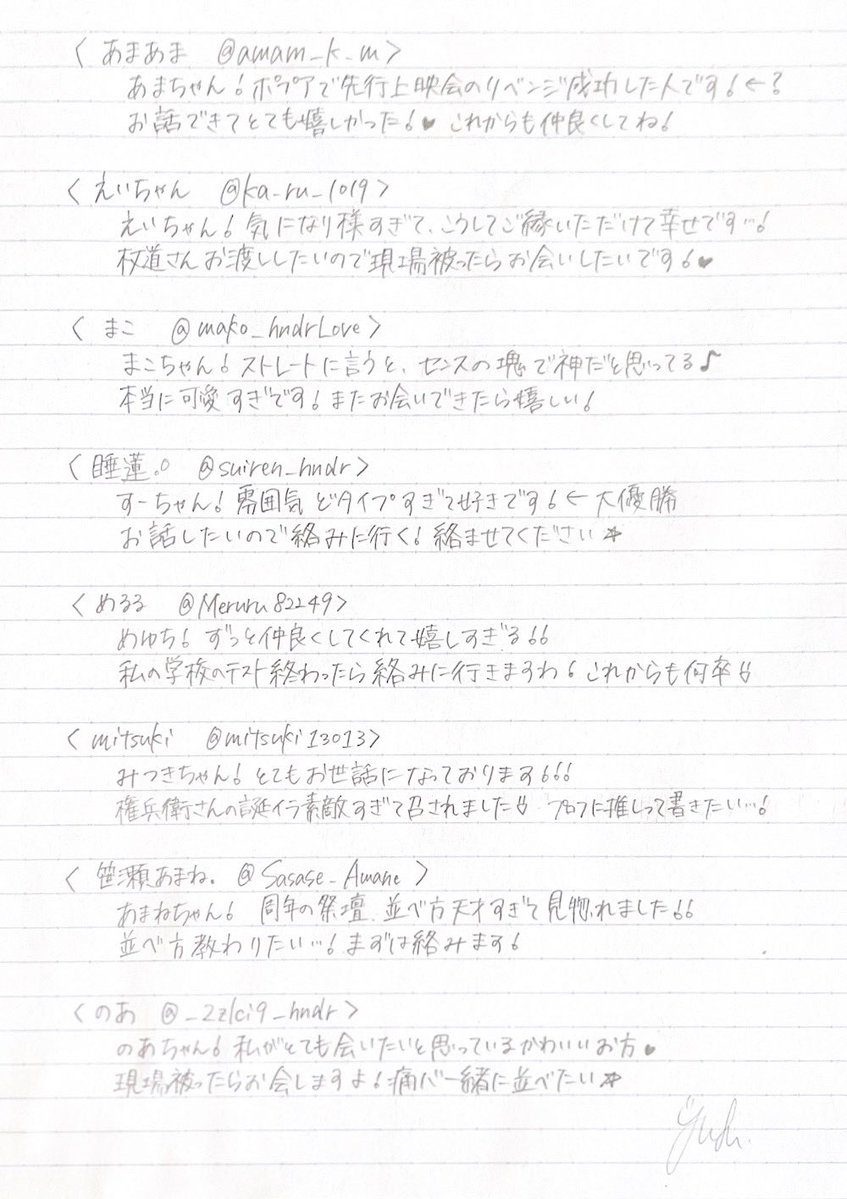 〈 あまあま @amam_k_m〉
あまちゃん！ポプアで先行上映会のリベンジ成功した人です！←？
お話できてとても嬉しかった！♥ これからも仲良くしてね！
〈 えいちゃん @ka_ru_1019〉
えいちゃん！気になり様すぎて、こうしてご縁いただけて幸せです…！
杖道さんお渡ししたいので現場被ったらお会いしたいです！♥
〈 まこ @mako_hndrLove〉
まこちゃん！ストレートに言うと、センスの塊で神だと思ってる♪
本当に可愛すぎです！またお会いできたら嬉しい！
〈睡蓮.○ @suiren_hndr〉
すーちゃん！雰囲気どタイプすぎて好きです！← 大優勝
お話したいので絡みに行く！絡ませてください☆
〈めるる @Meruru82249〉
めゆち！ずっと仲良くしてくれて嬉しすぎる！！
私の学校のテスト終わったら絡みに行きますわ！これからも何卒！！
〈 mitsuki @mitsuki13013〉
みつきちゃん！とてもお世話になっております！！！
権兵衛さんの誕イラ素敵すぎて召されました！！ プロフに推しって書きたい…！
〈 笹瀬あまね。@Sasase_Amane 〉
あまねちゃん！ 周年の祭壇、並べ方天才すぎて見惚れました！！
並べ方教わりたい…！まずは絡みます！
〈のあ @_2zlci9_hndr〉
のあちゃん！私がとても会いたいと思っているかわいいお方♥
現場被ったらお会しますよ！痛バ一緒に並べたい☆